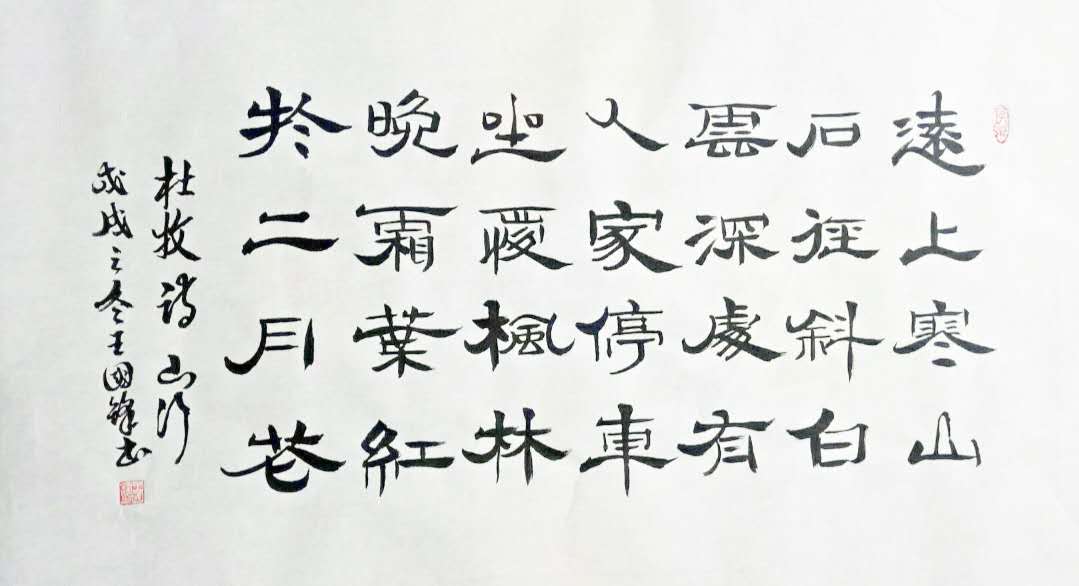 遠上寒山
石徑斜白
雲深處有
人家停車
坐愛楓林
晚霜葉紅
於二月花
杜牧詩山行
戊戌之冬王國鋒書